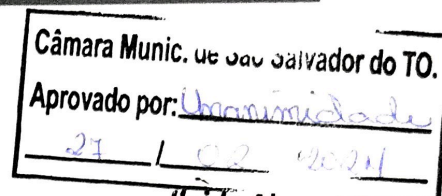 Câmara Munic. de São Salvador do TO.
Aprovado por: Unanimidade
27 / 02 2024